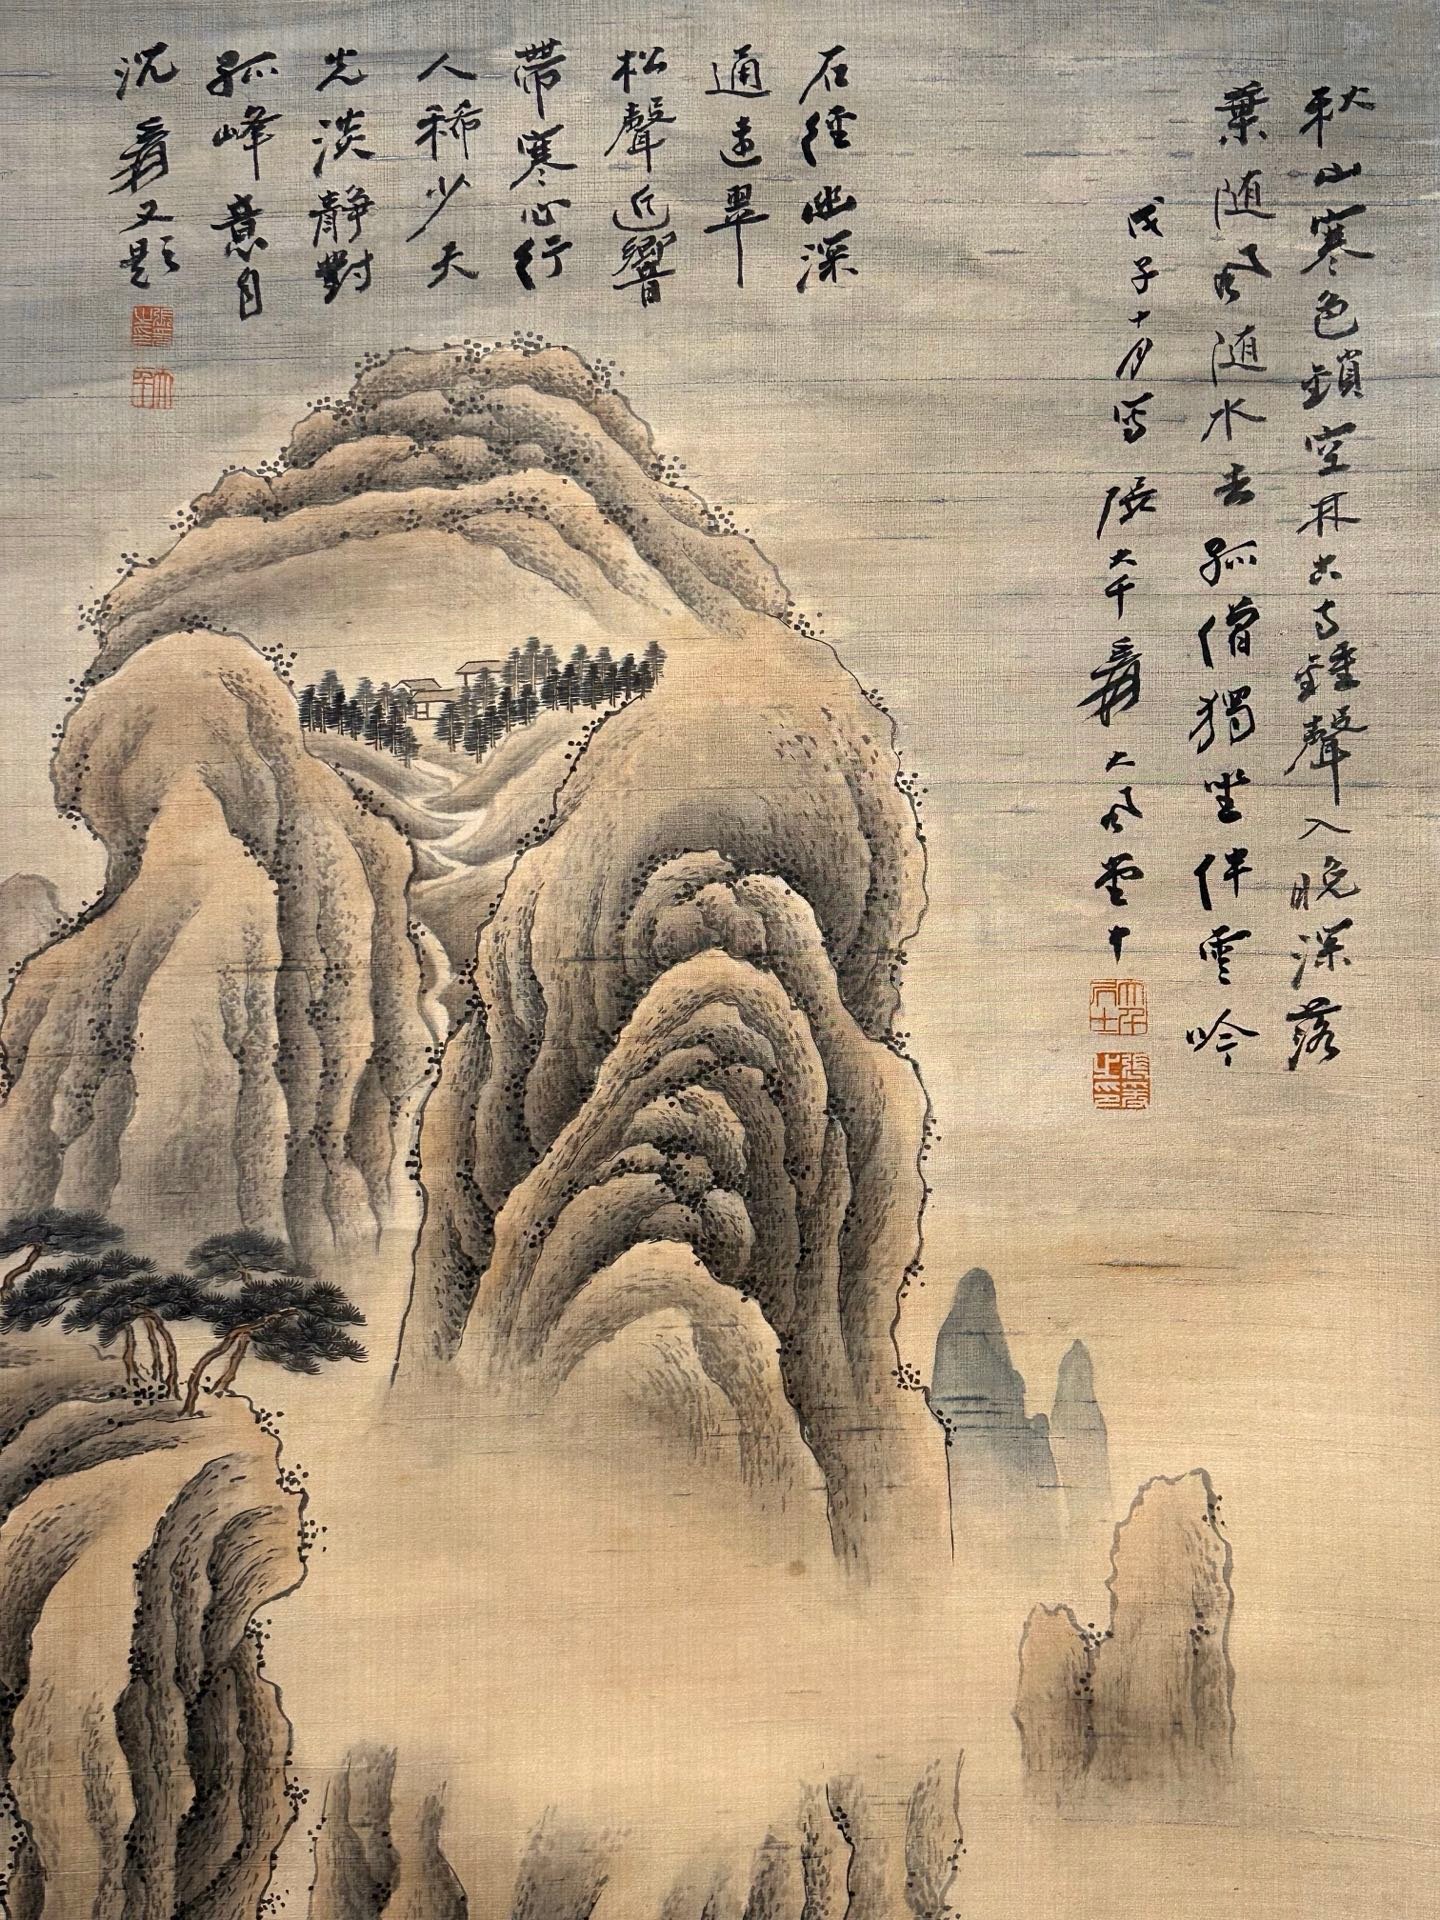 秋山寒色鎖空林古寺鐘聲入晚深落
葉随風随水去孤僧獨坐伴雲吟
戊子十月寫 張大千爰大風堂中
大千居士
張爰之印
石徑幽深
通遠翠
松聲近響
帶寒心行
人稀少天
光淡静對
孤峰意自
沉 爰又題
張爰之印
大千